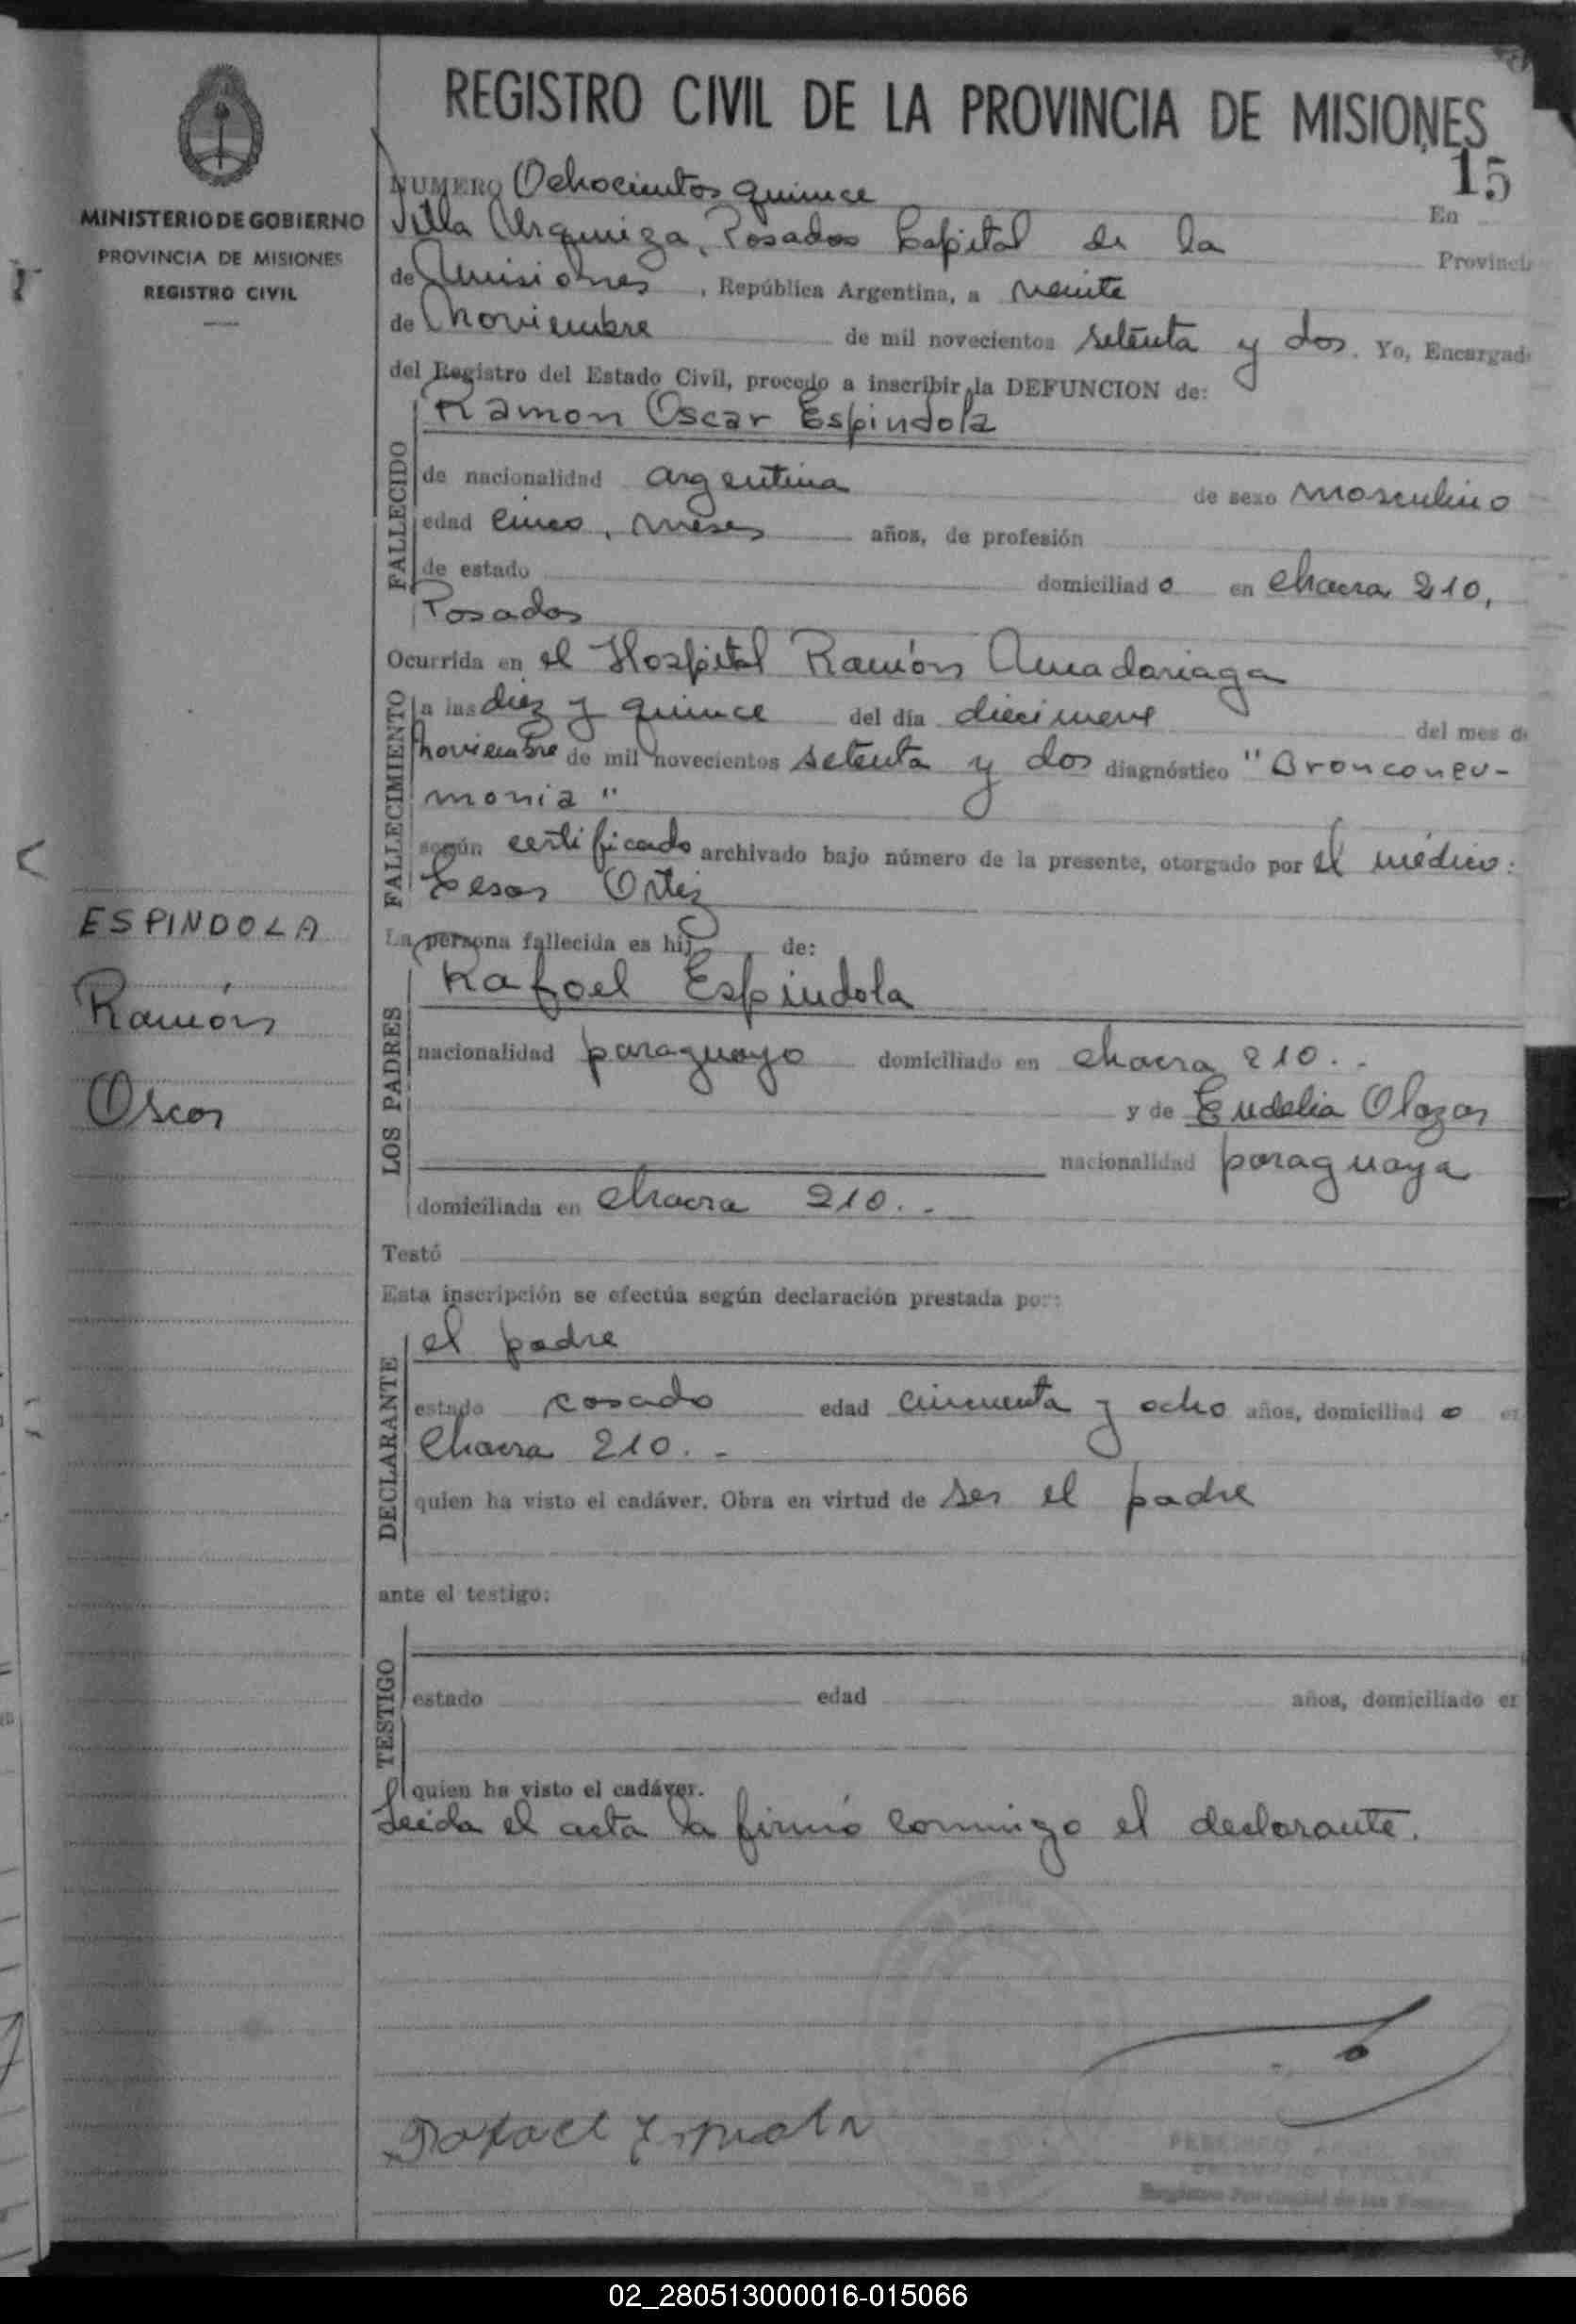 REGISTRO CIVIL DE LA PROVINCIA DE MISIONES
15
MINISTERIO DE GOBIERNO
PROVINCIA DE MISIONES
REGISTRO CIVIL
NUMERO Ochocientos quince En
Villa Urquiza, Posadas Capital de la Provincia
de Misiones, República Argentina, a veinte
de noviembre de mil novecientos setenta y dos. Yo, Encargad
del Registro del Estado Civil, procedo a inscribir la DEFUNCION de:
FALLECIDO
Ramon Oscar Espindola
de nacionalidad argentina de sexo masculino
edad cinco, meses años, de profesión
de estado domiciliado en chacra 210,
Posadas
Ocurrida en el Hospital Ramón Amadariaga
FALLECIMIENTO
a las diez y quince del día diecinueve del mes de
noviembre de mil novecientos setenta y dos diagnóstico "Bronconeu-
monia"
según certificado archivado bajo número de la presente, otorgado por el médico:
Cesar Ortiz
ESPINDOLA
Ramón
Oscar
La persona fallecida es hij de:
LOS PADRES
Rafael Espindola
nacionalidad paraguayo domiciliado en chacra 210..
y de Eudelia Olazar
nacionalidad paraguaya
domiciliada en chacra 210..-
Testó
Esta inscripción se efectúa según declaración prestada por:
DECLARANTE
el padre
estado casado edad cincuenta y ocho años, domiciliado en
Chacra 210..-
quien ha visto el cadáver. Obra en virtud de ser el padre
ante el testigo:
TESTIGO
estado edad años, domiciliado en
quien ha visto el cadáver.
Leída el acta la firmó conmigo el declarante.
02_280513000016-015066